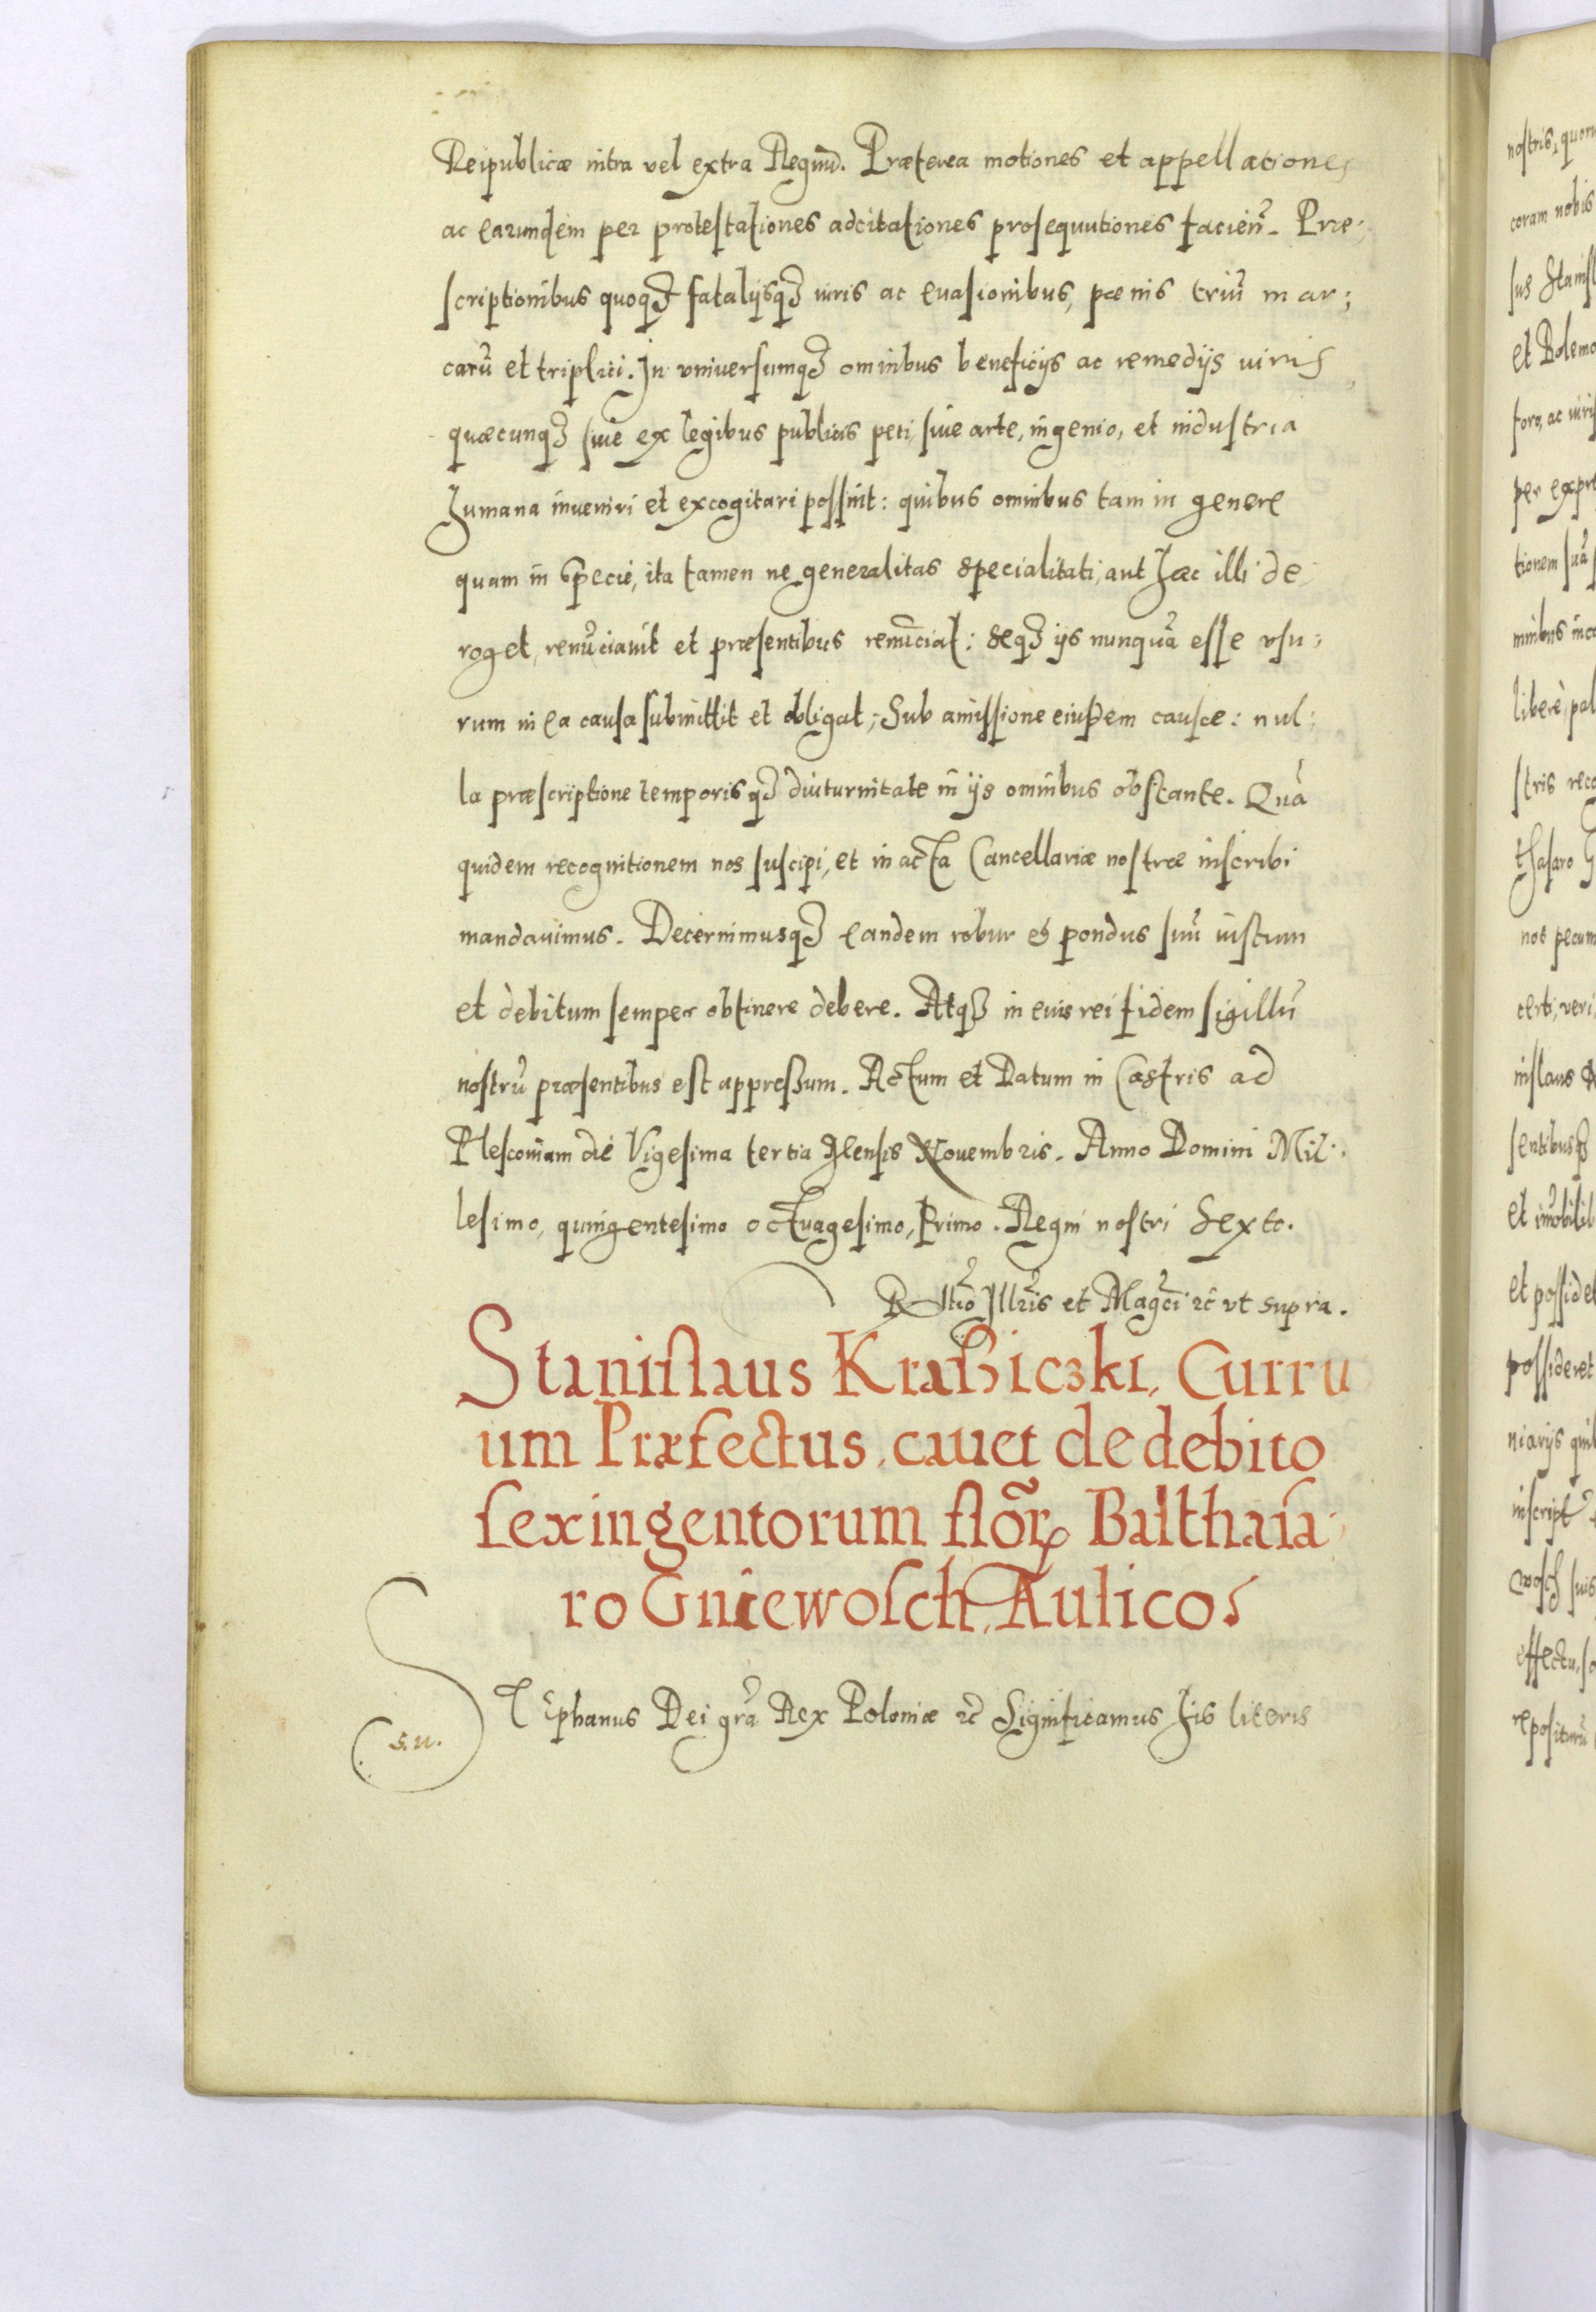 Reipublicæ intra vel extra Regnũ. Præterea motiones et appellationes
ac earundem per protestationes adcitationes prosequutiones facieñ. Præ:
scriptionibus quoqꝫ fatalijsqꝫ iuris ac euasionibus, pœnis triũ mar:
carũ et triplici. In vniuersumqꝫ omnibus beneficijs ac remedijs iuris
quæcunqꝫ siue ex legibus publicis peti, siue arte, ingenio, et industria
humana inueniri et excogitari possint: quibus omnibus tam in genere
quam in specie, ita tamen ne generalitas specialitati, aut hæc illi de:
roget, renũciauit et præsentibus renũciat: seqꝫ ijs nunquã esse vsu:
rum in ea causa submittit et obligat; Sub amissione eiusdem causæ: nul:
la præscriptione temporisqꝫ diuturnitate in ijs omnibus obstante. Quã
quidem recognitionem nos suscipi, et in acta Cancellariæ nostræ inscribi
mandauimus. Decernimusqꝫ eandem robur et pondus suũ iustum
et debitum semper obtinere debere. Atqꝫ in euis rei fidem sigillũ
nostrũ præsentibus est appressum. Actum et Datum in Castris ad
Plescouiam die Vigesima tertia Mensis Nouembris. Anno Domini Mil:
lesimo, quingentesimo octuagesimo, Primo. Regni nostri Sexto.
Rltio Illris et Magci ꝛc vt supra.
Stanislaus Kraßiczki, Curru
um Præfectus, cauet de debito
sexingentorum floꝝ Balthasa:
ro Gniewosch, Aulico.
STephanus Dei grã Rex Poloniæ ꝛc Significamus his literis
S. N.
nostris, quoru
coram nobis
sus Stanisl
et Bolemo
foro, ac iuris
per expre
tionem suã
minibus inca
liberè, pal
stris reco
thasaro G
nos pecun
certi, veri,
nislaus
sentibusqꝫ
et im̃obilib
et posside
possideret
niarijs quib
inscript
wosch suis
effectu, so
repositurũ